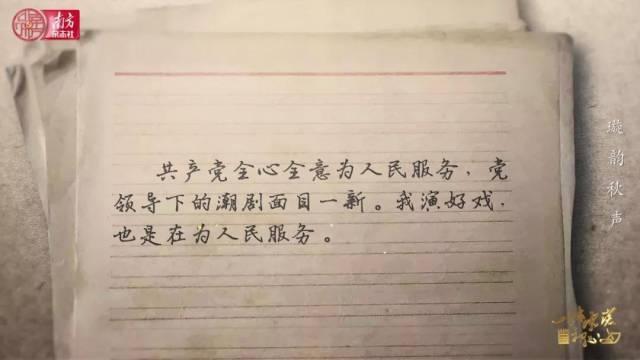 南方
杂志社
共产党全心全意为人民服务，党
领导下的潮剧面目一新。我演好戏，
也是在为人民服务。
璇韵秋声